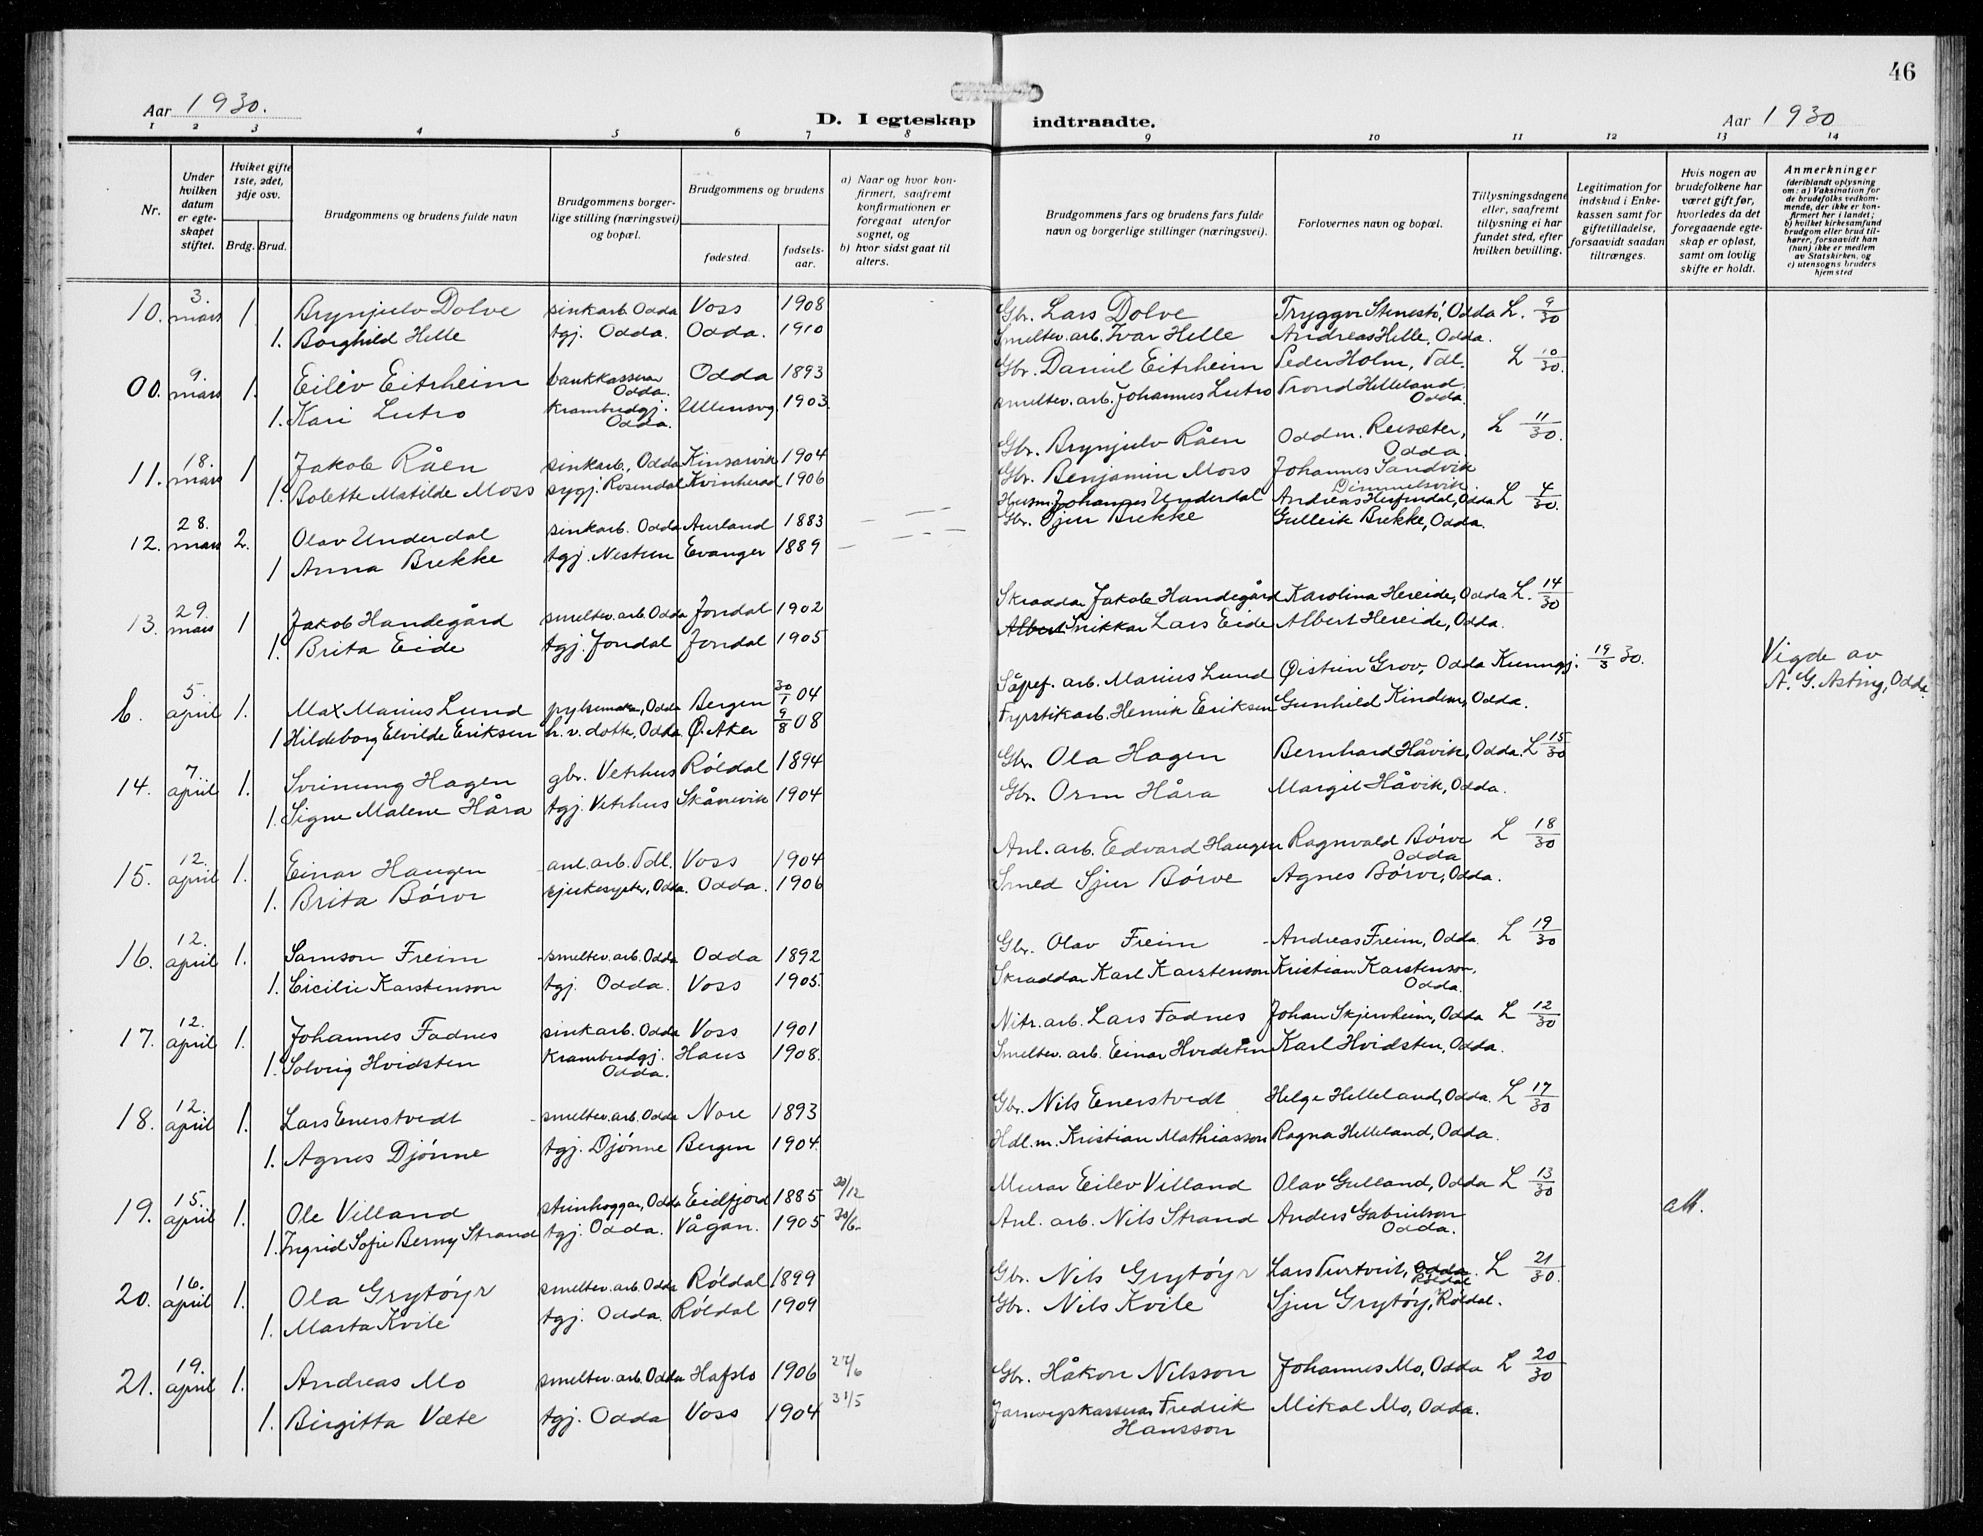 46
Aar 1930.
D. I egteskap indtraadte.
Aar 1930
1 2 3 4 5 6 7 8 9 10 11 12 13 14
Nr.
Under hvilken datum er egteskapet stiftet.
Hviket gifte 1ste, 2det, 3dje osv.
Brdg. Brud.
Brudgommens og brudens fulde navn
Brudgommens borgerlige stilling (næringsvei) og bopæl.
Brudgommens og brudens
fødested.
fødselsaar.
a) Naar og hvor konfirmert, saafremt konfirmationen er foregaat utenfor sognet, og
b) hvor sidst gaat til alters.
Brudgommens fars og brudens fars fulde navn og borgerlige stillinger (næringsvei).
Forlovernes navn og bopæl.
Tillysningsdagene eller, saafremt tillysning ei har fundet sted, efter hvilken bevilling.
Legitimation for indskud i Enkekassen samt for giftetilladelse, forsaavidt saadan tiltrænges.
Hvis nogen av brudefolkene har været gift før, hvorledes da det foregaaende egteskap er opløst, samt om lovlig skifte er holdt.
Anmerkninger
(deriblandt oplysning om: a) Vaksination for de brudefolks vedkommende, der ikke er konfirmert her i landet; b) hvilket kirkesamfund brudgom eller brud tilhører, forsaavidt han (hun) ikke er medlem av Statskirken, og c) utensogns bruders hjemsted
10. 3. mars 1. Brynjulv Dolve sinkarb. Odda Voss 1908 Gbr. Lars Dolve Tryggve Stenestö, Odda L. 9/30
1. Borghild Helle tgj. Odda. Odda. 1910 Smeltev. arb. Ivar Helle Andreas Helle, Odda.
00. 9. mars 1. Eilev Eitrheim bankkasserar Odda. Odda 1893 Gbr. Daniel Eitrheim Peder Holm, Tdl. L 10/30.
1. Kari Lutro Krambudgj. Odda. Ullensvg. 1903. smeltev. arb. Johannes Lutro Trond Helleland. Odda.
11. 18. mars 1 Jakob Råen sinkarb., Odda Kinsarvik 1904 Gbr. Brynjulv Råen Oddm. Reisæter, Odda. L 11/30.
1. Bolette Matilde Moss sygj. Rosendal Kvinherad 1906 Gbr. Benjamin Moss Johannes Sandvik Dimmelsvik.
12. 28. mars 2. Olav Underdal sinkarb. Odda Aurland 1883 Husm. Johannes Underdal Andreas Hesjendal, Odda L 4/30.
1 Anna Brekke tgj. Nesttun Evanger 1889 Gbr. Sjur Brekke Gulleik Brekke, Odda.
13. 29. mars 1 Jakob Handegård smeltev. arb Odda Jondal 1902 Skraddar Jakob Handegård Karolina Hereide, Odda L. 14/30
1. Brita Eide tgj. Jondal Jondal 1905 Albert Snikkar Lars Eide Albert Hereide, Odda.
b. 5. april 1. Max Marius Lund pylsemakar, Odda Bergen 30/1 04 Såpef. arb. Marius Lund Øistein Grov, Odda Kunngj. 19/3 30. Vigde av A. G. Asting, Odda.
1 Hildeborg Elvilde Eriksen h. v. dotter, Odda Ø. Aker 9/8 08 Fyrstikarb. Henrik Eriksen Gunhild Kindem, Odda.
14. 7. april 1. Sveinung Hagen gbr. Vetrhus Röldal 1894 Gbr. Ola Hagen Bernhard Håvik, Odda. L 15/30
1. Signe Malene Håra tgj. Vetrhus Skånevik 1904 Gbr. Orm Håra Margit Håvik, Odda.
15. 12. april 1. Einar Haugen anl. arb. Tdl. Voss 1904 Anl. arb. Edvard Haugen Ragnvald Börve Odda L 18/30
1. Brita Börve sjukesyster, Odda. Odda. 1906 Smed Sjur Börve Agnes Börve, Odda.
16. 12. april 1. Samson Freim smeltev. arb. Odda Odda 1892 Gbr. Olav Freim Andreas Freim, Odda. L 19/30
1. Cicilie Karstenson tgj. Odda. Voss 1905. Skraddar Karl Karstenson Kristian Karstenson. Odda.
17. 12. april 1. Johannes Fadnes sinkarb. Odda Voss 1901 Nitr. arb. Lars Fadnes Johan Skjervheim, Odda L 12/30
1. Solveig Hvidsten Krambudgj. Odda. Haus 1908. Smeltev. arb. Einar Hvidsten Karl Hvidsten, Odda.
18. 12. april 1. Lars Enerstvedt smeltev. arb. Odda Nore 1893 Gbr. Nils Enerstvedt Helge Helleland, Odda. L 17/30
1. Agnes Djönne tgj. Djönne Bergen 1904. Hdl. m. Kristian Mathiasson Ragna Helleland, Odda.
19. 15. april 1. Ole Villand steinhoggar, Odda Eidfjord 1885 20/12 Murar Eilev Villand Olav Gulland, Odda L 13/30 att.
1. Ingrid Sofie Berny Strand tgj. Odda. Vågan. 1905 30/6. Anl. arb. Nils Strand Anders Gabrielson Odda.
20. 16. april 1. Ola Grytöyr smeltev. arb. Odda Röldal 1899 Gbr. Nils Grytöyr Lars Turtveit, Odda Röldal. L 21/30.
1. Marta Kvile tgj. Odda. Röldal 1909 Gbr. Nils Kvile Sjur Grytöy, Röldal.
21. 19. april 1. Andreas Mo smeltev. arb. Odda Hafslo 1906 27/6 Gbr. Håkon Nilsson Johannes Mo, Odda L 20/30
1. Birgitta Væte tgj. Odda Voss 1904 31/5 Jarnvegskasserar Fredrik Hansson Mikal Mo, Odda.